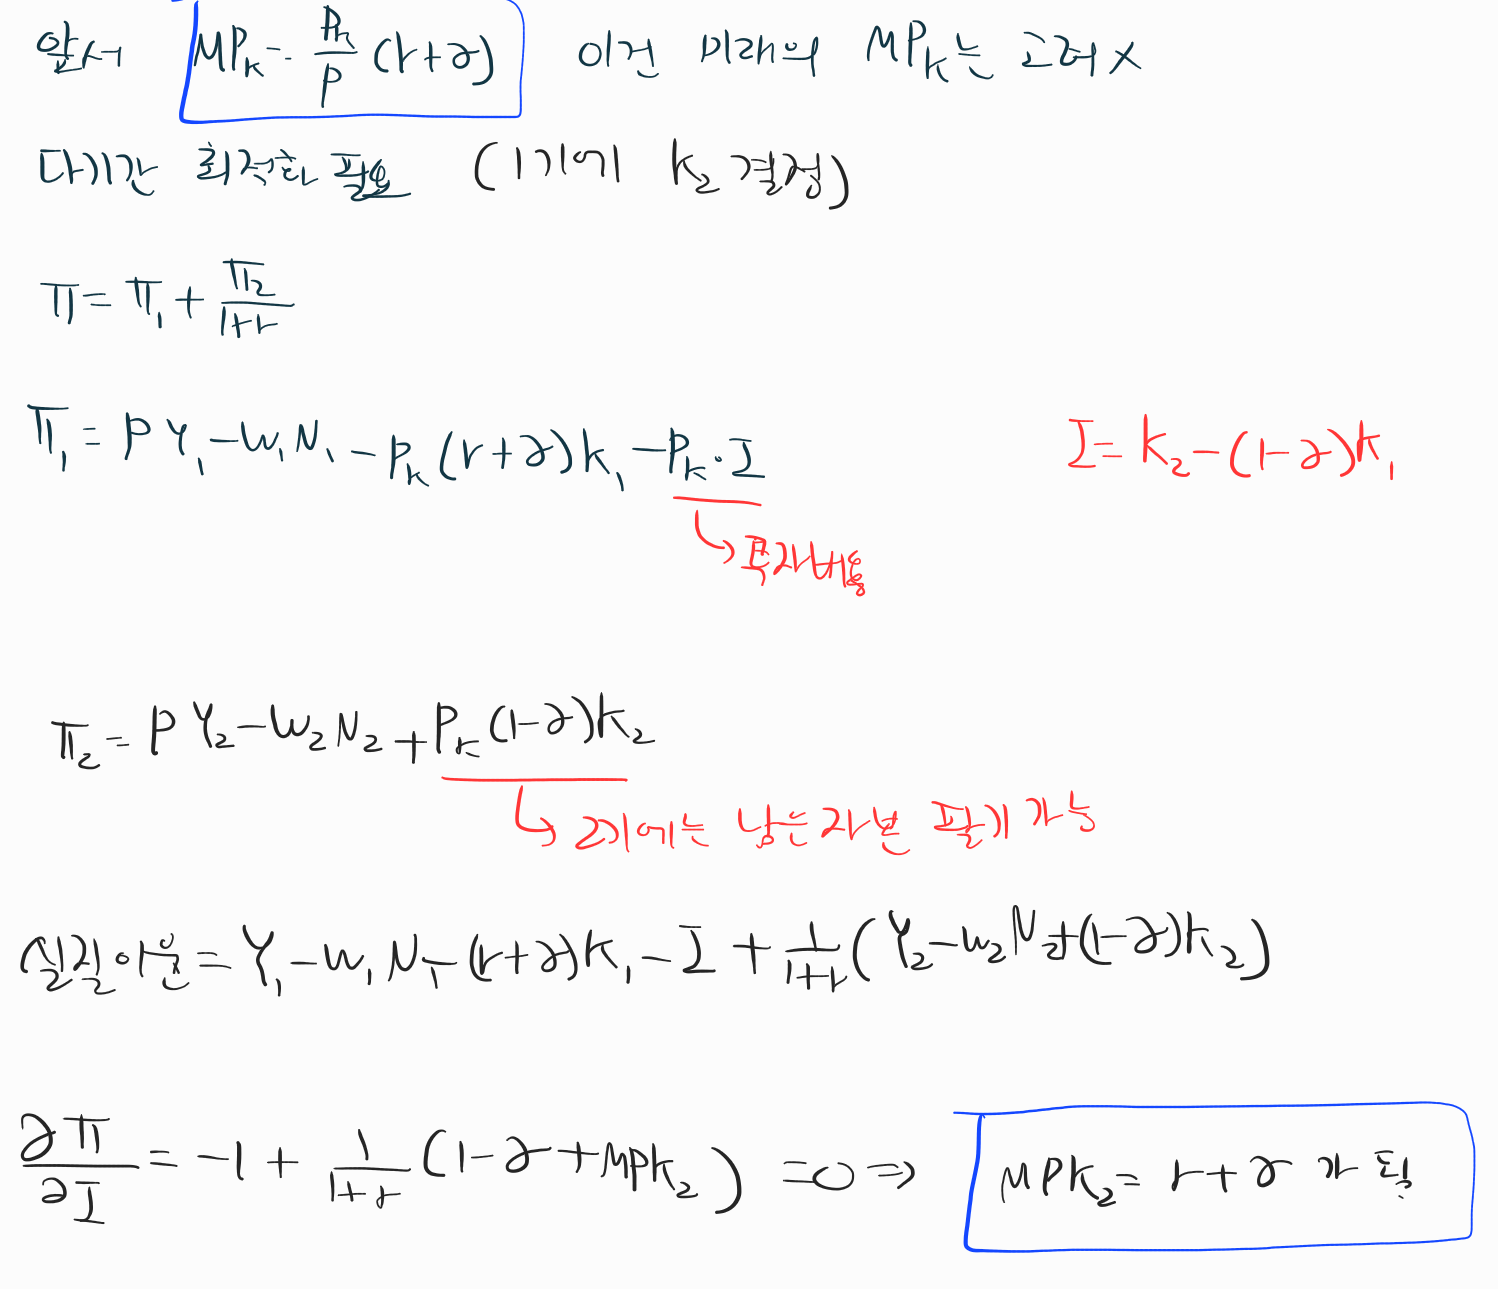 앞서 MPₖ = Pₖ/P (r+∂) 이건 미래의 MPₖ는 고려 X
다기간 최적화 필요 (1기에 K₂ 결정)
π = π₁ + π₂/(1+r)
π₁ = PY₁ - W₁N₁ - Pₖ(r+∂)K₁ - Pₖ·I
I = K₂ - (1-∂)K₁
↳ 투자비용
π₂ = PY₂ - W₂N₂ + Pₖ(1-∂)K₂
↳ 2기에는 남는자본 팔기 가능
실질이윤 = Y₁ - w₁N₁ - (r+∂)K₁ - I + 1/(1+r) (Y₂ - w₂N₂ + (1-∂)K₂)
∂π/∂I = -1 + 1/(1+r) (1-∂+MPK₂) = 0 ⇒ MPK₂ = r+∂ 가 됨.